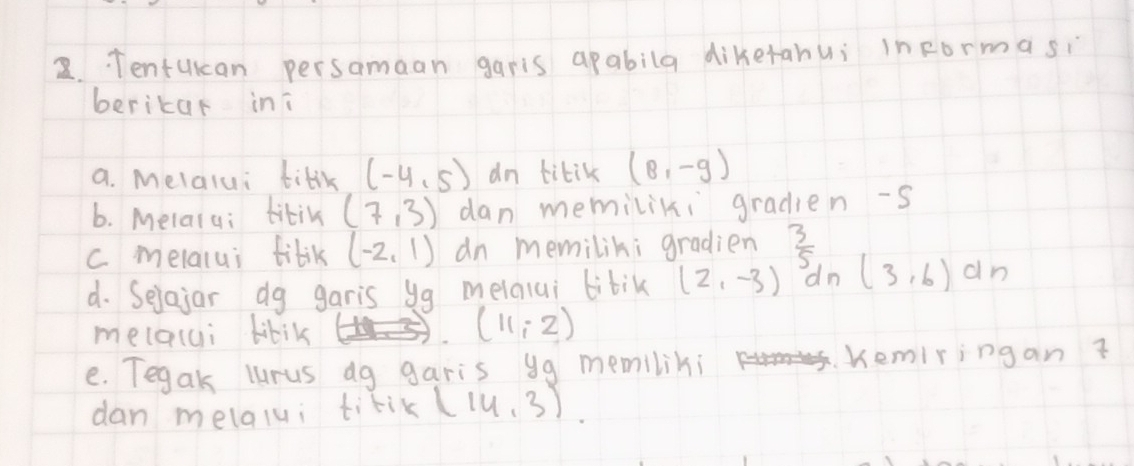 2. Tentukan persamaan garis apabila diketahui informasi
berikut ini
a. Melalui titik (-4, 5) dn titik (8, -9)
b. Melalui titik (7, 3) dan memiliki gradien -5
c melalui titik (-2, 1) dn memiliki gradien 3/5
d. Sejajar dg garis yg melalui titik (2, -3) dn (3, 6) dn
melalui titik (11; 2)
e. Tegak lurus dg garis yg memiliki kemiringan 7
dan melalui titik (14, 3).